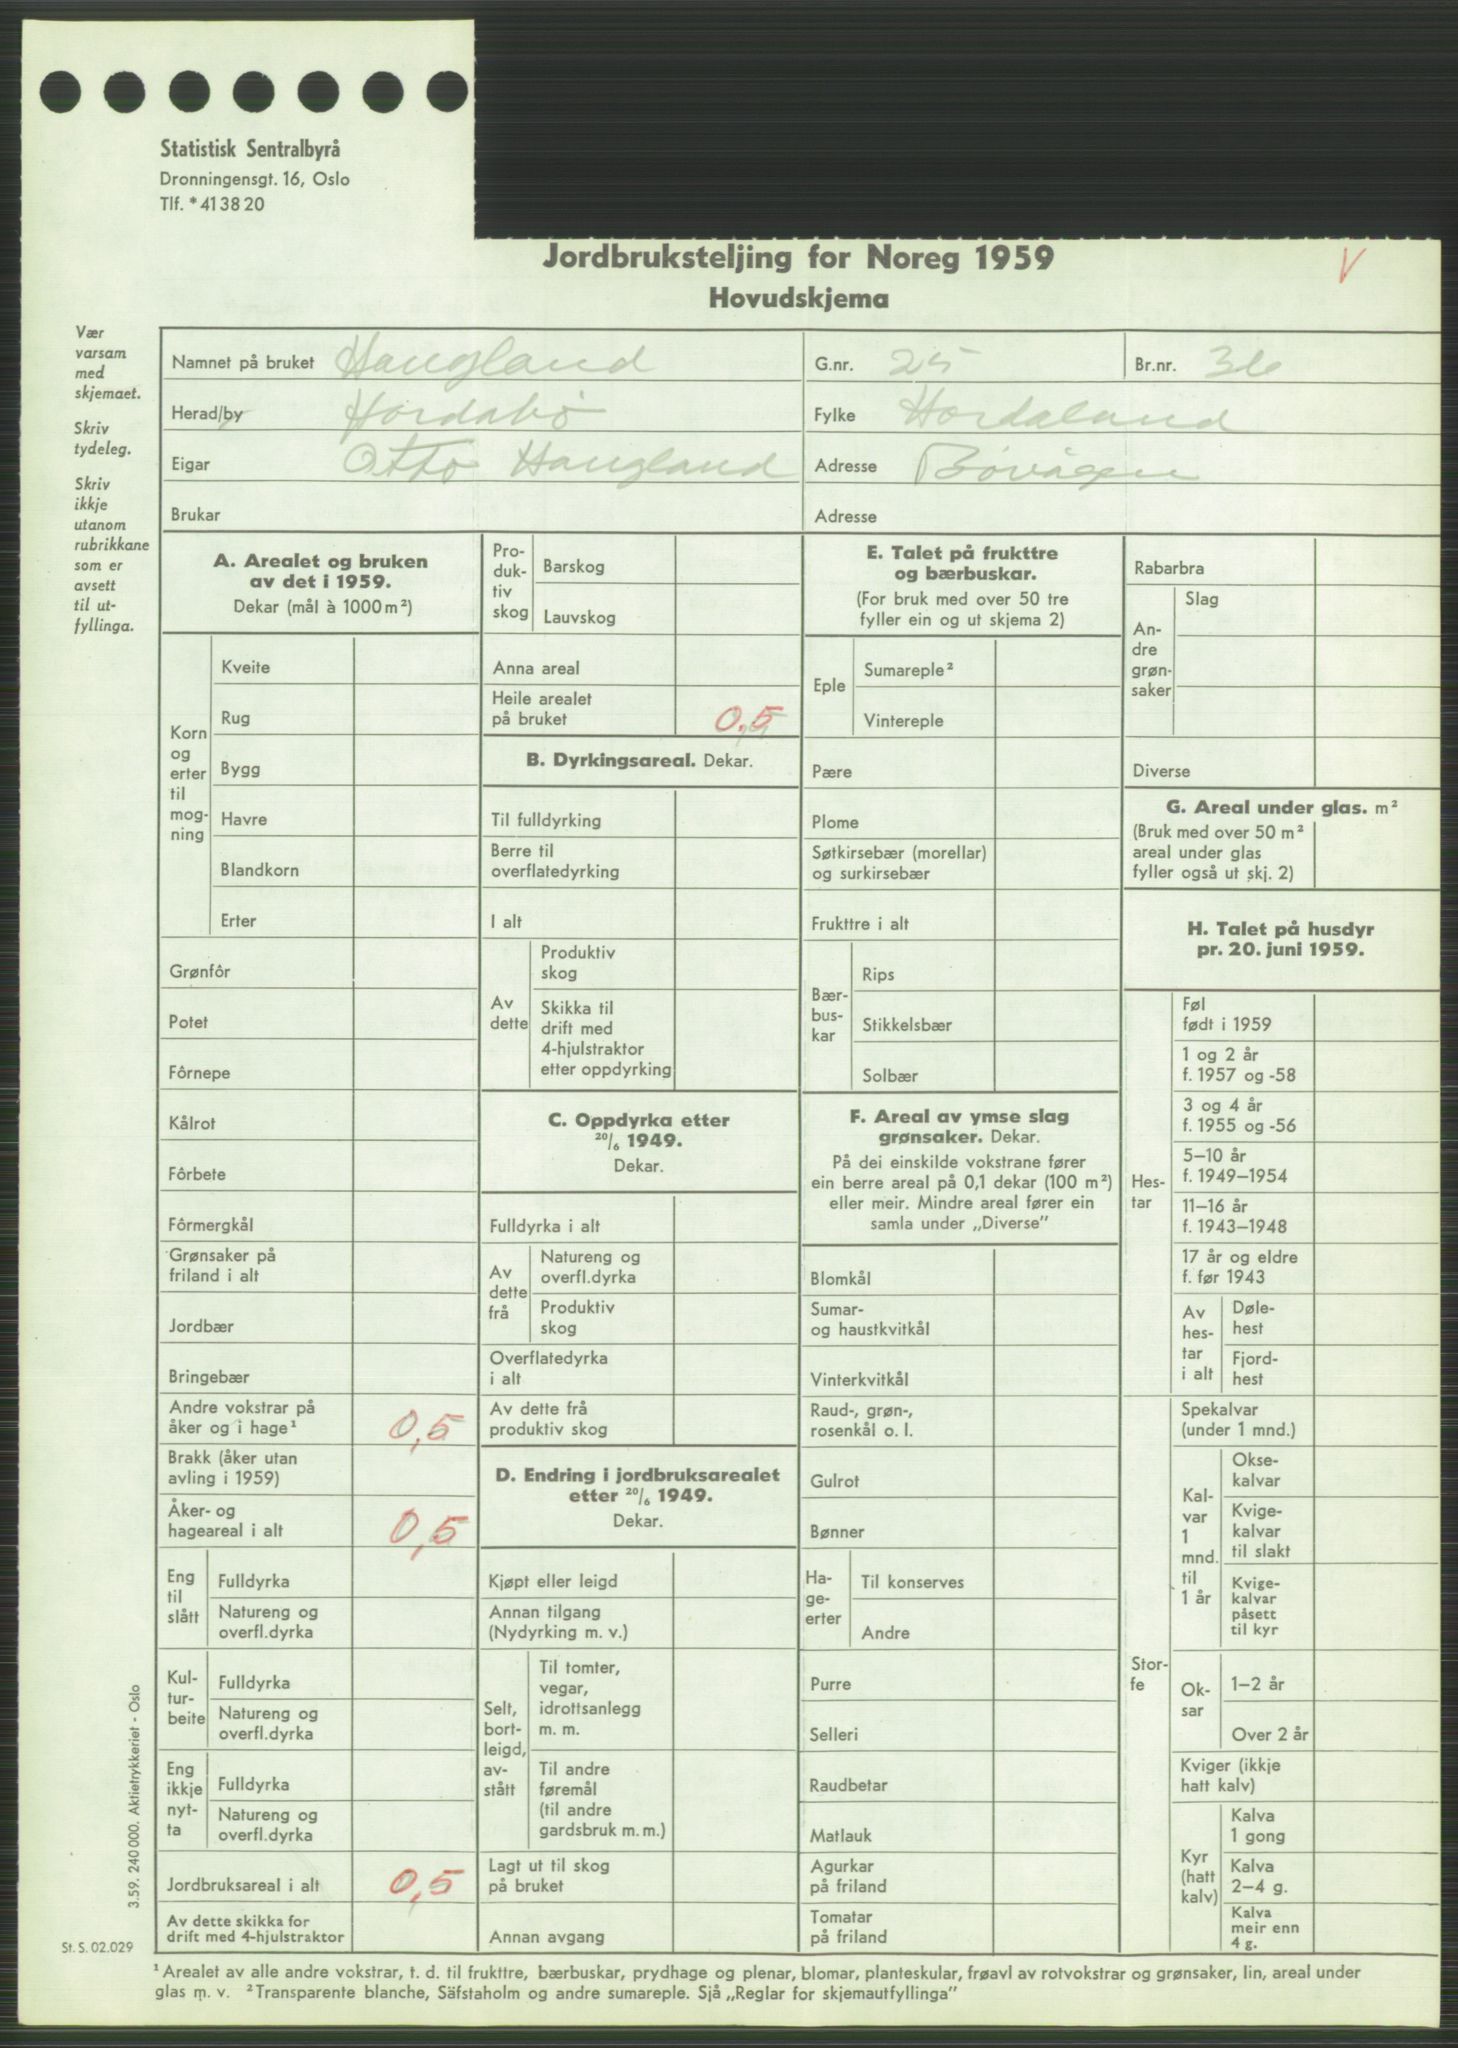 Statistisk Sentralbyrå
Dronningensgt. 16, Oslo
Tlf. *41 38 20
Jordbruksteljing for Noreg 1959
Hovudskjema
V
Vær
varsam
med
skjemaet.
Skriv
tydeleg.
Skriv
ikkje
utanom
rubrikkane
som er
avsett
til ut-
fyllinga.
Namnet på bruket Haugland G.nr. 25 Br.nr. 36
Herad/by Hordabø Fylke Hordaland
Eigar Otto Haugland Adresse Bøvågen
Brukar Adresse
A. Arealet og bruken
av det i 1959.
Dekar (mål à 1000 m²)
Korn
og
erter
til
mog-
ning
Kveite
Rug
Bygg
Havre
Blandkorn
Erter
Grønfôr
Potet
Fôrnepe
Kålrot
Fôrbete
Fôrmergkål
Grønsaker på
friland i alt
Jordbær
Bringebær
Andre vokstrar på
åker og i hage¹ 0,5
Brakk (åker utan
avling i 1959)
Åker- og
hageareal i alt 0,5
Eng
til
slått
Fulldyrka
Natureng og
overfl.dyrka
Kul-
tur-
beite
Fulldyrka
Natureng og
overfl.dyrka
Eng
ikkje
nyt-
ta
Fulldyrka
Natureng og
overfl.dyrka
Jordbruksareal i alt 0,5
Av dette skikka for
drift med 4-hjulstraktor
Pro-
duk-
tiv
skog
Barskog
Lauvskog
Anna areal
Heile arealet
på bruket 0,5
B. Dyrkingsareal. Dekar.
Til fulldyrking
Berre til
overflatedyrking
I alt
Av
dette
Produktiv
skog
Skikka til
drift med
4-hjulstraktor
etter oppdyrking
C. Oppdyrka etter
20/6 1949.
Dekar.
Fulldyrka i alt
Av
dette
frå
Natureng og
overfl.dyrka
Produktiv
skog
Overflatedyrka
i alt
Av dette frå
produktiv skog
D. Endring i jordbruksarealet
etter 20/6 1949.
Dekar.
Kjøpt eller leigd
Annan tilgang
(Nydyrking m. v.)
Selt,
bort-
leigd,
av-
stått
Til tomter,
vegar,
idrottsanlegg
m. m.
Til andre
føremål
(til andre
gardsbruk m. m.)
Lagt ut til skog
på bruket
Annan avgang
E. Talet på frukttre
og bærbuskar.
(For bruk med over 50 tre
fyller ein og ut skjema 2)
Eple
Sumareple²
Vintereple
Pære
Plome
Søtkirsebær (morellar)
og surkirsebær
Frukttre i alt
Bær-
bus-
kar
Rips
Stikkelsbær
Solbær
F. Areal av ymse slag
grønsaker. Dekar.
På dei einskilde vokstrane fører
ein berre areal på 0,1 dekar (100 m²)
eller meir. Mindre areal fører ein
samla under „Diverse”
Blomkål
Sumar-
og haustkvitkål
Vinterkvitkål
Raud-, grøn-,
rosenkål o. l.
Gulrot
Bønner
Ha-
ge-
erter
Til konserves
Andre
Purre
Selleri
Raudbetar
Matlauk
Agurkar
på friland
Tomatar
på friland
Rabarbra
An-
dre
grøn-
saker
Slag
Diverse
G. Areal under glas. m²
(Bruk med over 50 m²
areal under glas
fyller også ut skj. 2)
H. Talet på husdyr
pr. 20. juni 1959.
Hes-
tar
Føl
født i 1959
1 og 2 år
f. 1957 og -58
3 og 4 år
f. 1955 og -56
5–10 år
f. 1949–1954
11–16 år
f. 1943–1948
17 år og eldre
f. før 1943
Av
hes-
tar
i alt
Døle-
hest
Fjord-
hest
Stor-
fe
Spekalvar
(under 1 mnd.)
Kal-
var
1
mnd.
til
1 år
Okse-
kalvar
Kvige-
kalvar
til slakt
Kvige-
kalvar
påsett
til kyr
Ok-
sar
1–2 år
Over 2 år
Kviger (ikkje
hatt kalv)
Kyr
(hatt
kalv)
Kalva
1 gong
Kalva
2–4 g.
Kalva
meir enn
4 g.
3.59. 240 000. Aktietrykkeriet - Oslo
St. S. 02.029
¹ Arealet av alle andre vokstrar, t. d. til frukttre, bærbuskar, prydhage og plenar, blomar, planteskular, frøavl av rotvokstrar og grønsaker, lin, areal under
glas m. v. ² Transparente blanche, Säfstaholm og andre sumareple. Sjå „Reglar for skjemautfyllinga”